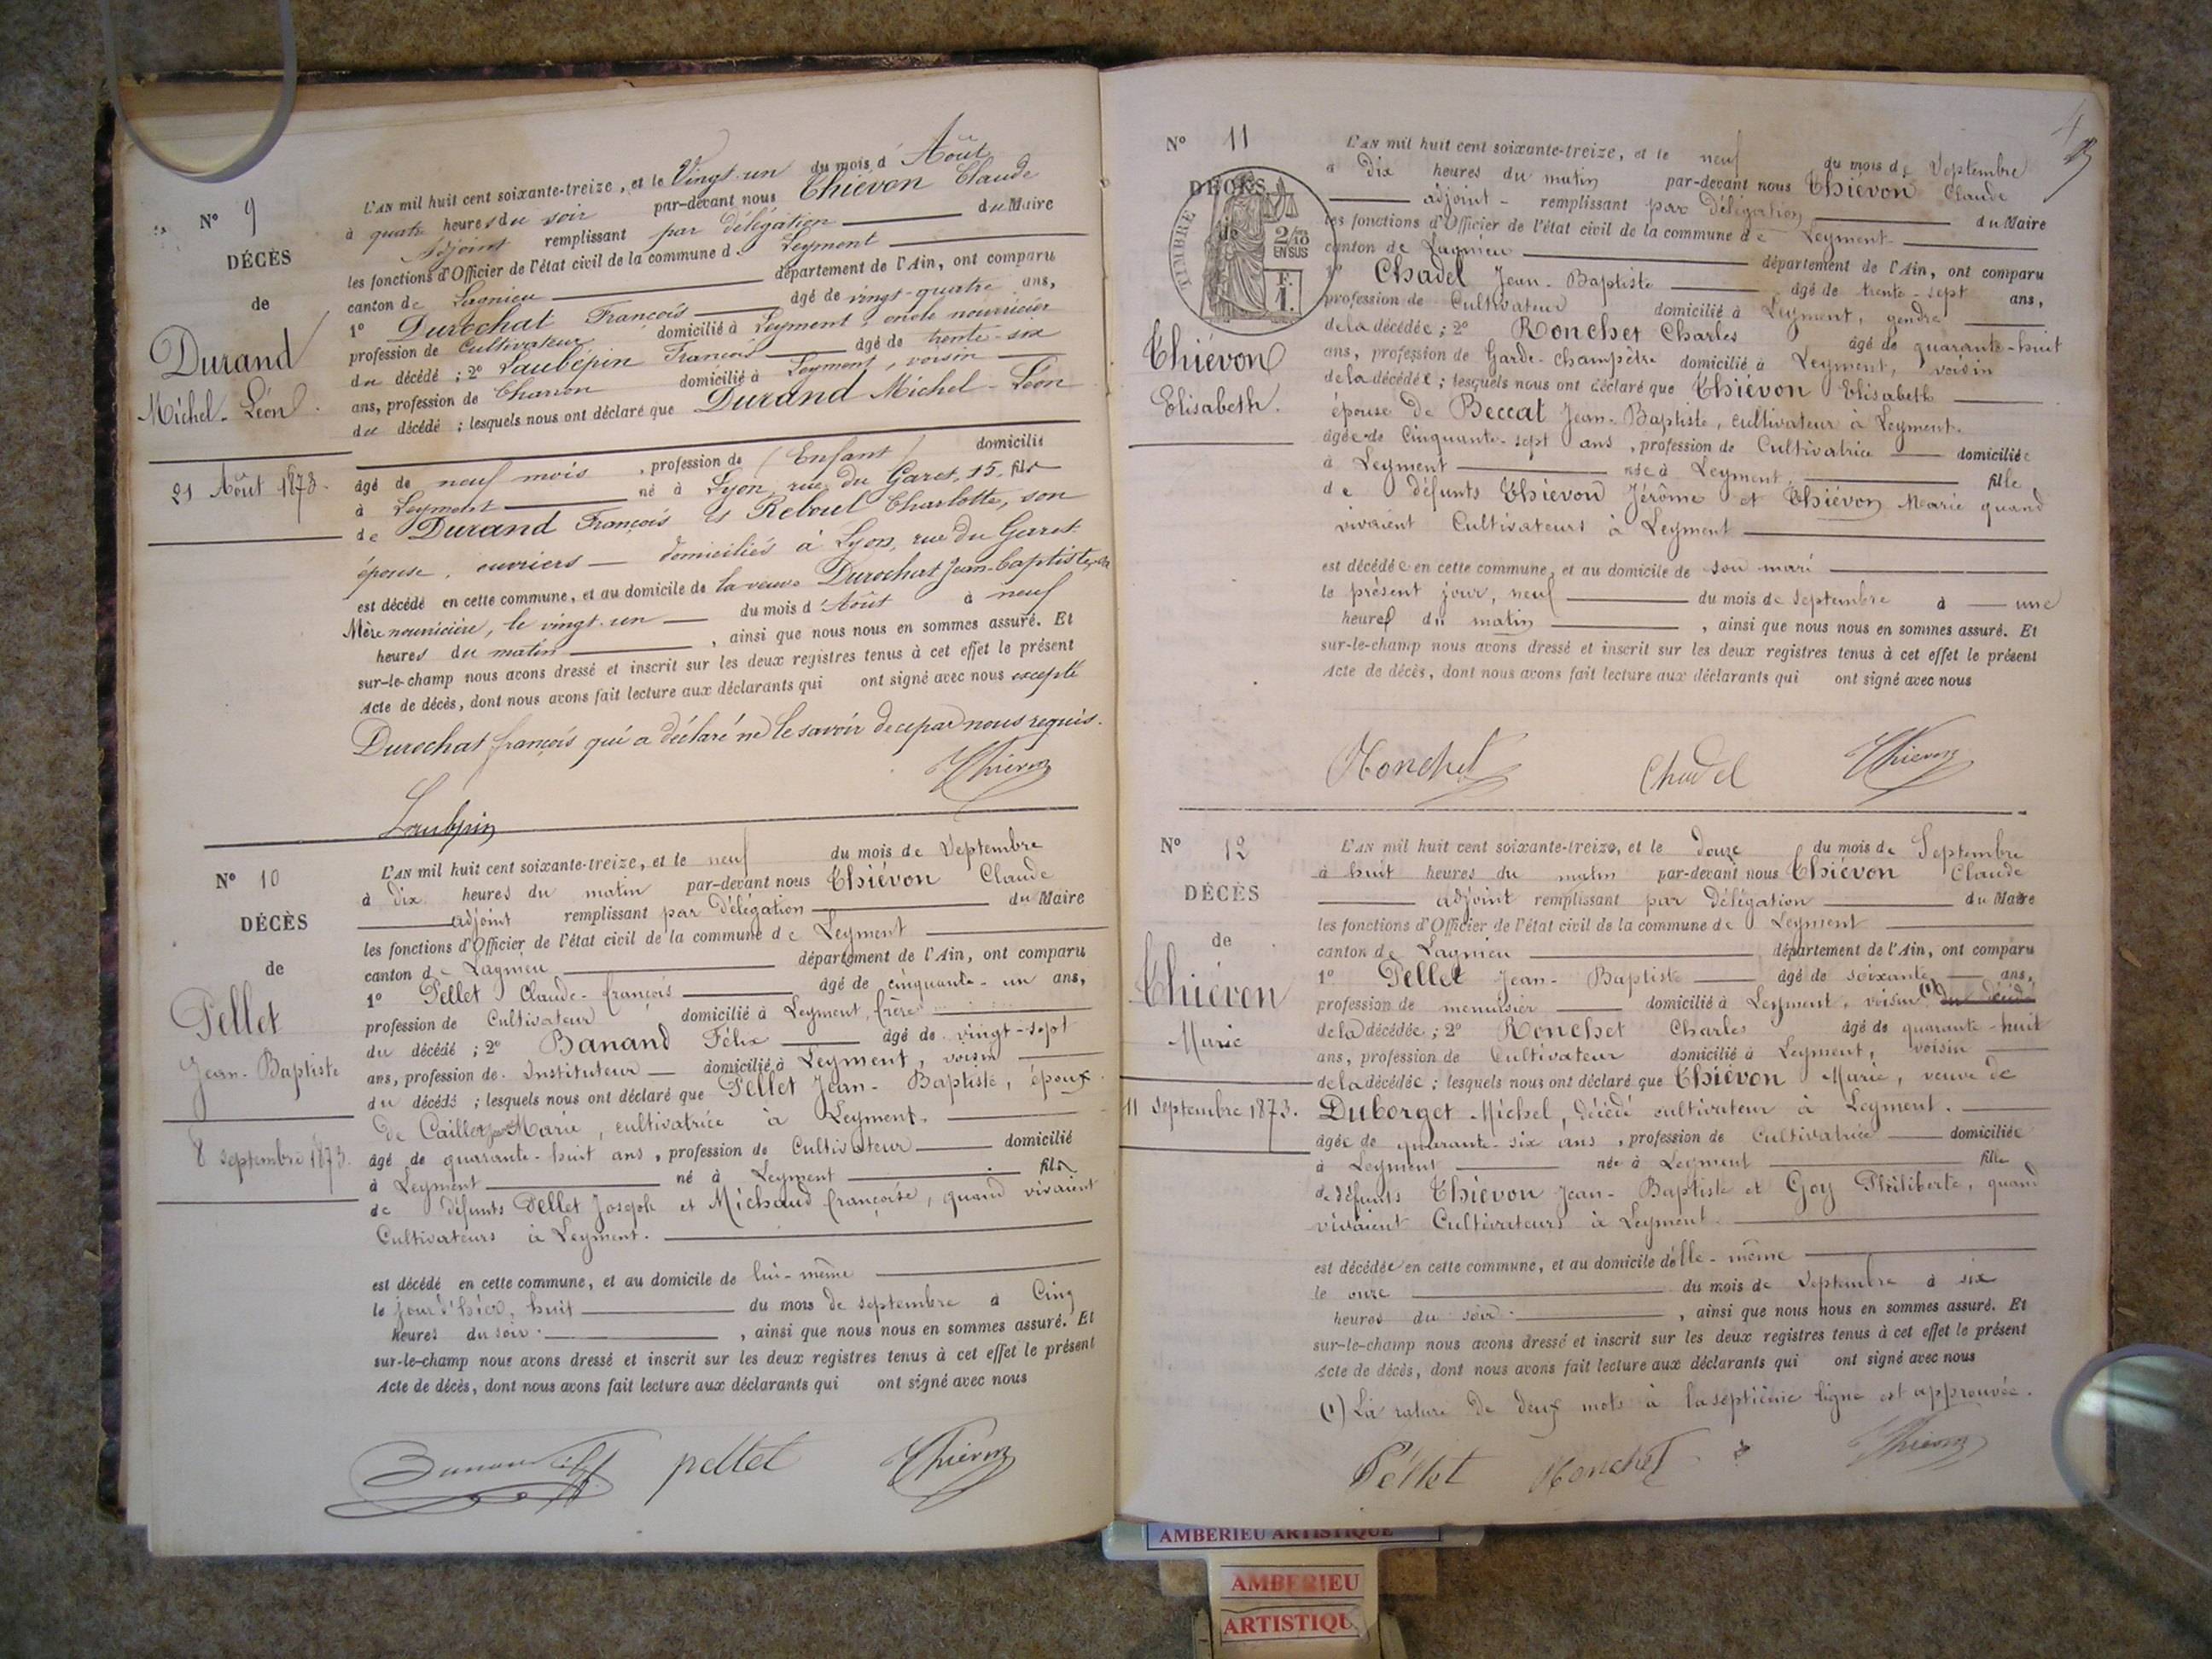 N° 9
DÉCÈS
de
Durand
Michel-Léon.
21 Août 1873.
L'AN mil huit cent soixante-treize, et le Vingt-un du mois d'Août
à quatre heures du soir par-devant nous Thiévon Claude
Adjoint remplissant par délégation du Maire
les fonctions d'Officier de l'état civil de la commune de Leyment
canton de Lagnieu département de l'Ain, ont comparu
1° Durochat François âgé de vingt-quatre ans,
profession de Cultivateur domicilié à Leyment, oncle nourricier
du décédé ; 2° Laubépin François âgé de trente-six
ans, profession de Charron domicilié à Leyment, voisin
du décédé ; lesquels nous ont déclaré que Durand Michel-Léon
âgé de neuf mois, profession de (Enfant) domicilié
à Leyment né à Lyon, rue du Garet, 15, fils
de Durand François et Reboul Charlotte, son
épouse, ouvriers domiciliés à Lyon, rue du Garet.
est décédé en cette commune, et au domicile de la veuve Durochat Jean-baptiste,
Mère nourricière, le vingt-un du mois d'Août à neuf
heures du matin, ainsi que nous nous en sommes assuré. Et
sur-le-champ nous avons dressé et inscrit sur les deux registres tenus à cet effet le présent
Acte de décès, dont nous avons fait lecture aux déclarants qui ont signé avec nous excepté
Durochat françois qui a déclaré ne le savoir de ce par nous requis.
Thiévon
Laubépin
N° 10
DÉCÈS
de
Pellet
Jean-Baptiste
8 septembre 1873.
L'AN mil huit cent soixante-treize, et le neuf du mois de Septembre
à dix heures du matin par-devant nous Thiévon Claude
adjoint remplissant par délégation du Maire
les fonctions d'Officier de l'état civil de la commune de Leyment
canton de Lagnieu département de l'Ain, ont comparu
1° Pellet Claude-françois âgé de cinquante-un ans,
profession de Cultivateur domicilié à Leyment, frère
du décédé ; 2° Banand Félix âgé de vingt-sept
ans, profession de Instituteur domicilié à Leyment, voisin
du décédé ; lesquels nous ont déclaré que Pellet Jean-Baptiste, époux
de Marie, cultivatrice à Leyment.
âgé de quarante-huit ans, profession de Cultivateur domicilié
à Leyment né à Leyment fils
de défunts Pellet Joseph et Michaud françoise, quand vivaient
Cultivateurs à Leyment.
est décédé en cette commune, et au domicile de lui-même
le jour d'hier, huit du mois de septembre à Cinq
heures du soir, ainsi que nous nous en sommes assuré. Et
sur-le-champ nous avons dressé et inscrit sur les deux registres tenus à cet effet le présent
Acte de décès, dont nous avons fait lecture aux déclarants qui ont signé avec nous
Banand pellet Thiévon
N° 11
DÉCÈS
de
TIMBRE
2/10
EN SUS
F.
1.
Thiévon
Elisabeth.
L'AN mil huit cent soixante-treize, et le neuf du mois de Septembre
à dix heures du matin par-devant nous Thiévon Claude
adjoint - remplissant par délégation du Maire
les fonctions d'Officier de l'état civil de la commune de Leyment
canton de Lagnieu département de l'Ain, ont comparu
1° Chadel Jean-Baptiste âgé de trente-sept ans,
profession de Cultivateur domicilié à Leyment, gendre
de la décédée ; 2° Ronchet Charles âgé de quarante-huit
ans, profession de Garde-champêtre domicilié à Leyment, voisin
de la décédée ; lesquels nous ont déclaré que Thiévon Elisabeth
épouse de Beccat Jean-Baptiste, cultivateur à Leyment.
âgée de Cinquante-sept ans, profession de Cultivatrice domiciliée
à Leyment née à Leyment, fille
de défunts Thiévon Jérôme et Thiévon Marie quand
vivaient Cultivateurs à Leyment
est décédée en cette commune, et au domicile de son mari
le présent jour, neuf du mois de septembre à une
heure du matin, ainsi que nous nous en sommes assuré. Et
sur-le-champ nous avons dressé et inscrit sur les deux registres tenus à cet effet le présent
Acte de décès, dont nous avons fait lecture aux déclarants qui ont signé avec nous
Ronchet Chadel Thiévon
N° 12
DÉCÈS
de
Thiévon
Marie
11 septembre 1873.
L'AN mil huit cent soixante-treize, et le douze du mois de Septembre
à huit heures du matin par-devant nous Thiévon Claude
adjoint remplissant par délégation du Maire
les fonctions d'Officier de l'état civil de la commune de Leyment
canton de Lagnieu département de l'Ain, ont comparu
1° Pellet Jean-Baptiste âgé de soixante ans,
profession de menuisier domicilié à Leyment, voisin (1) du décédé
de la décédée ; 2° Ronchet Charles âgé de quarante-huit
ans, profession de Cultivateur domicilié à Leyment, voisin
de la décédée ; lesquels nous ont déclaré que Thiévon Marie, veuve de
Duborget Michel, décédé cultivateur à Leyment.
âgée de quarante-six ans, profession de Cultivatrice domiciliée
à Leyment née à Leyment fille
de défunts Thiévon Jean-Baptiste et Goy Philiberte, quand
vivaient Cultivateurs à Leyment.
est décédée en cette commune, et au domicile d'elle-même
le onze du mois de Septembre à six
heures du soir, ainsi que nous nous en sommes assuré. Et
sur-le-champ nous avons dressé et inscrit sur les deux registres tenus à cet effet le présent
Acte de décès, dont nous avons fait lecture aux déclarants qui ont signé avec nous
(1) La rature de deux mots à la septième ligne est approuvée.
Pellet Ronchet Thiévon
AMBERIEU ARTISTIQUE
AMBERIEU
ARTISTIQU